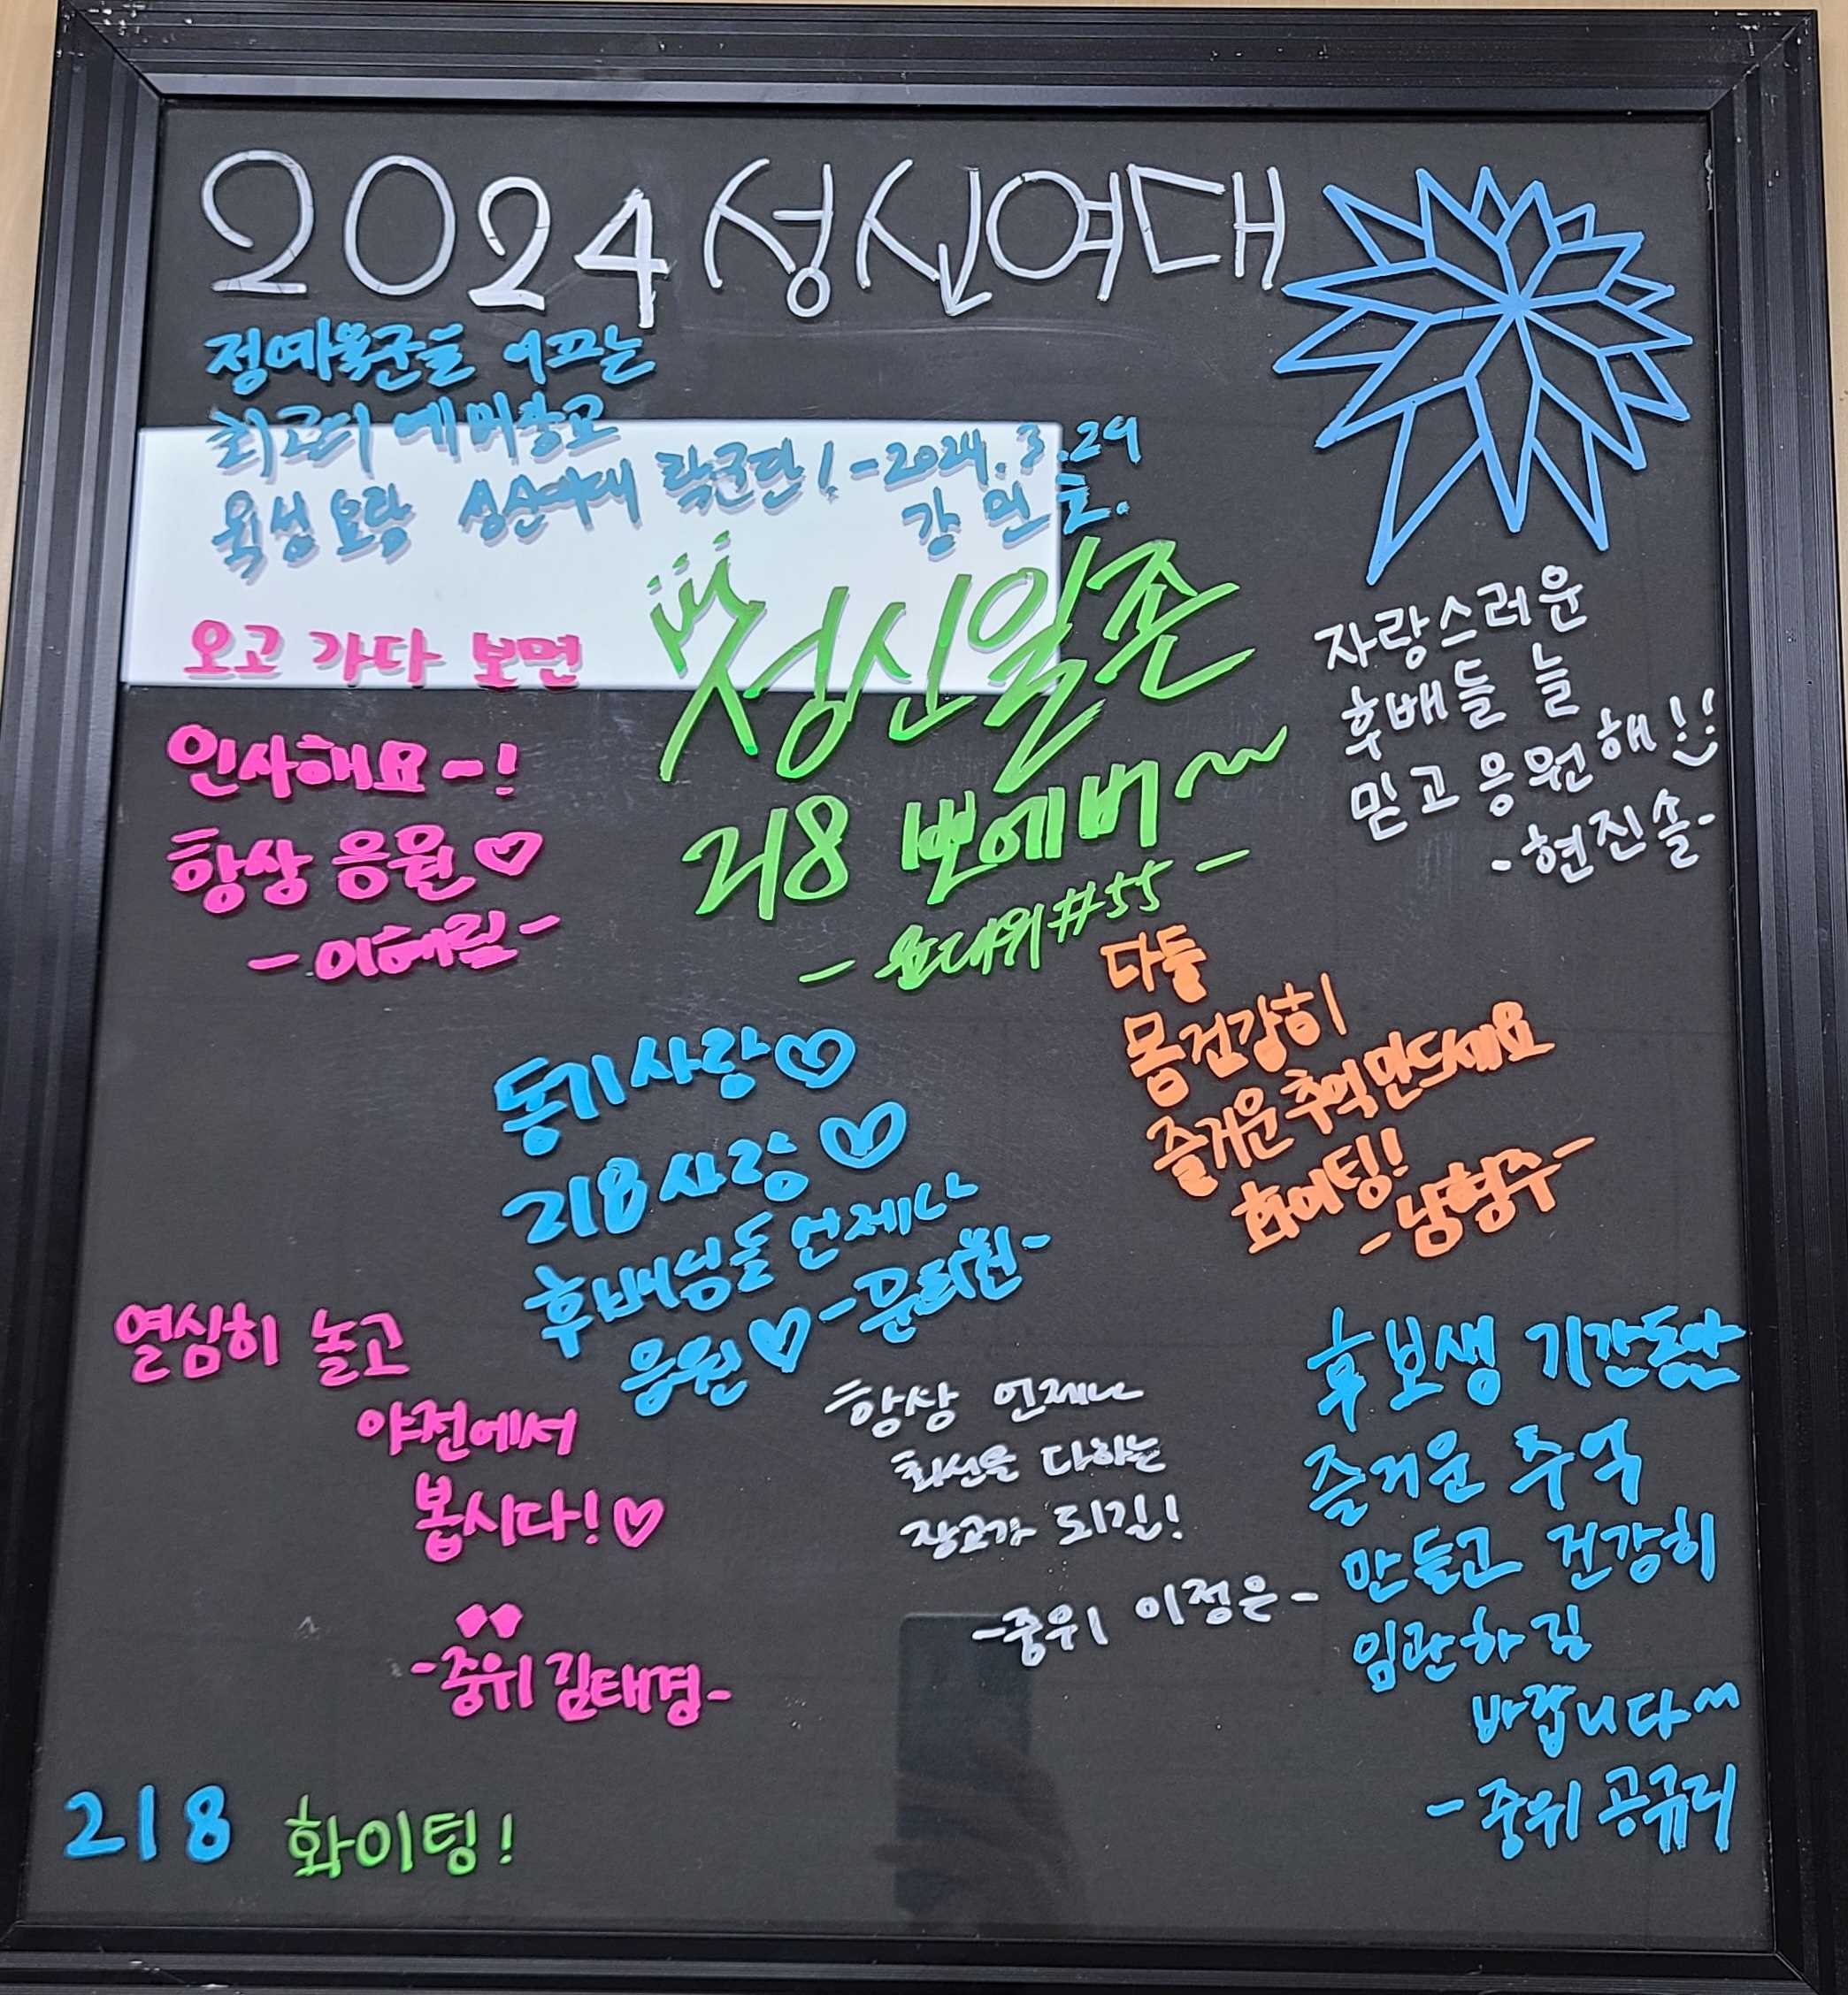 2024 성신여대
정예육군을 이끄는
최고의 예비장교
육성 요람 성신여대 학군단! - 2024. 3. 29
강 인
오고 가다 보면
인사해요~!
항상 응원♡
- 이혜린 -
성신일존
218 뽀에버~
- 윤대위 #55 -
자랑스러운
후배들 늘
믿고 응원해!!
- 현진솔 -
다들
몸 건강히
즐거운 추억 만드세요
화이팅!
- 남형주 -
동기사랑♡
218사랑♡
후배님들 언제나
응원♡ - 문희원 -
열심히 놀고
야전에서
봅시다!♡
- 중위 김태경 -
항상 언제나
최선을 다하는
장교가 되길!
- 중위 이정은 -
후보생 기간동안
즐거운 추억
만들고 건강히
임관하길
바랍니다^^
- 중위 공규리
218 화이팅!